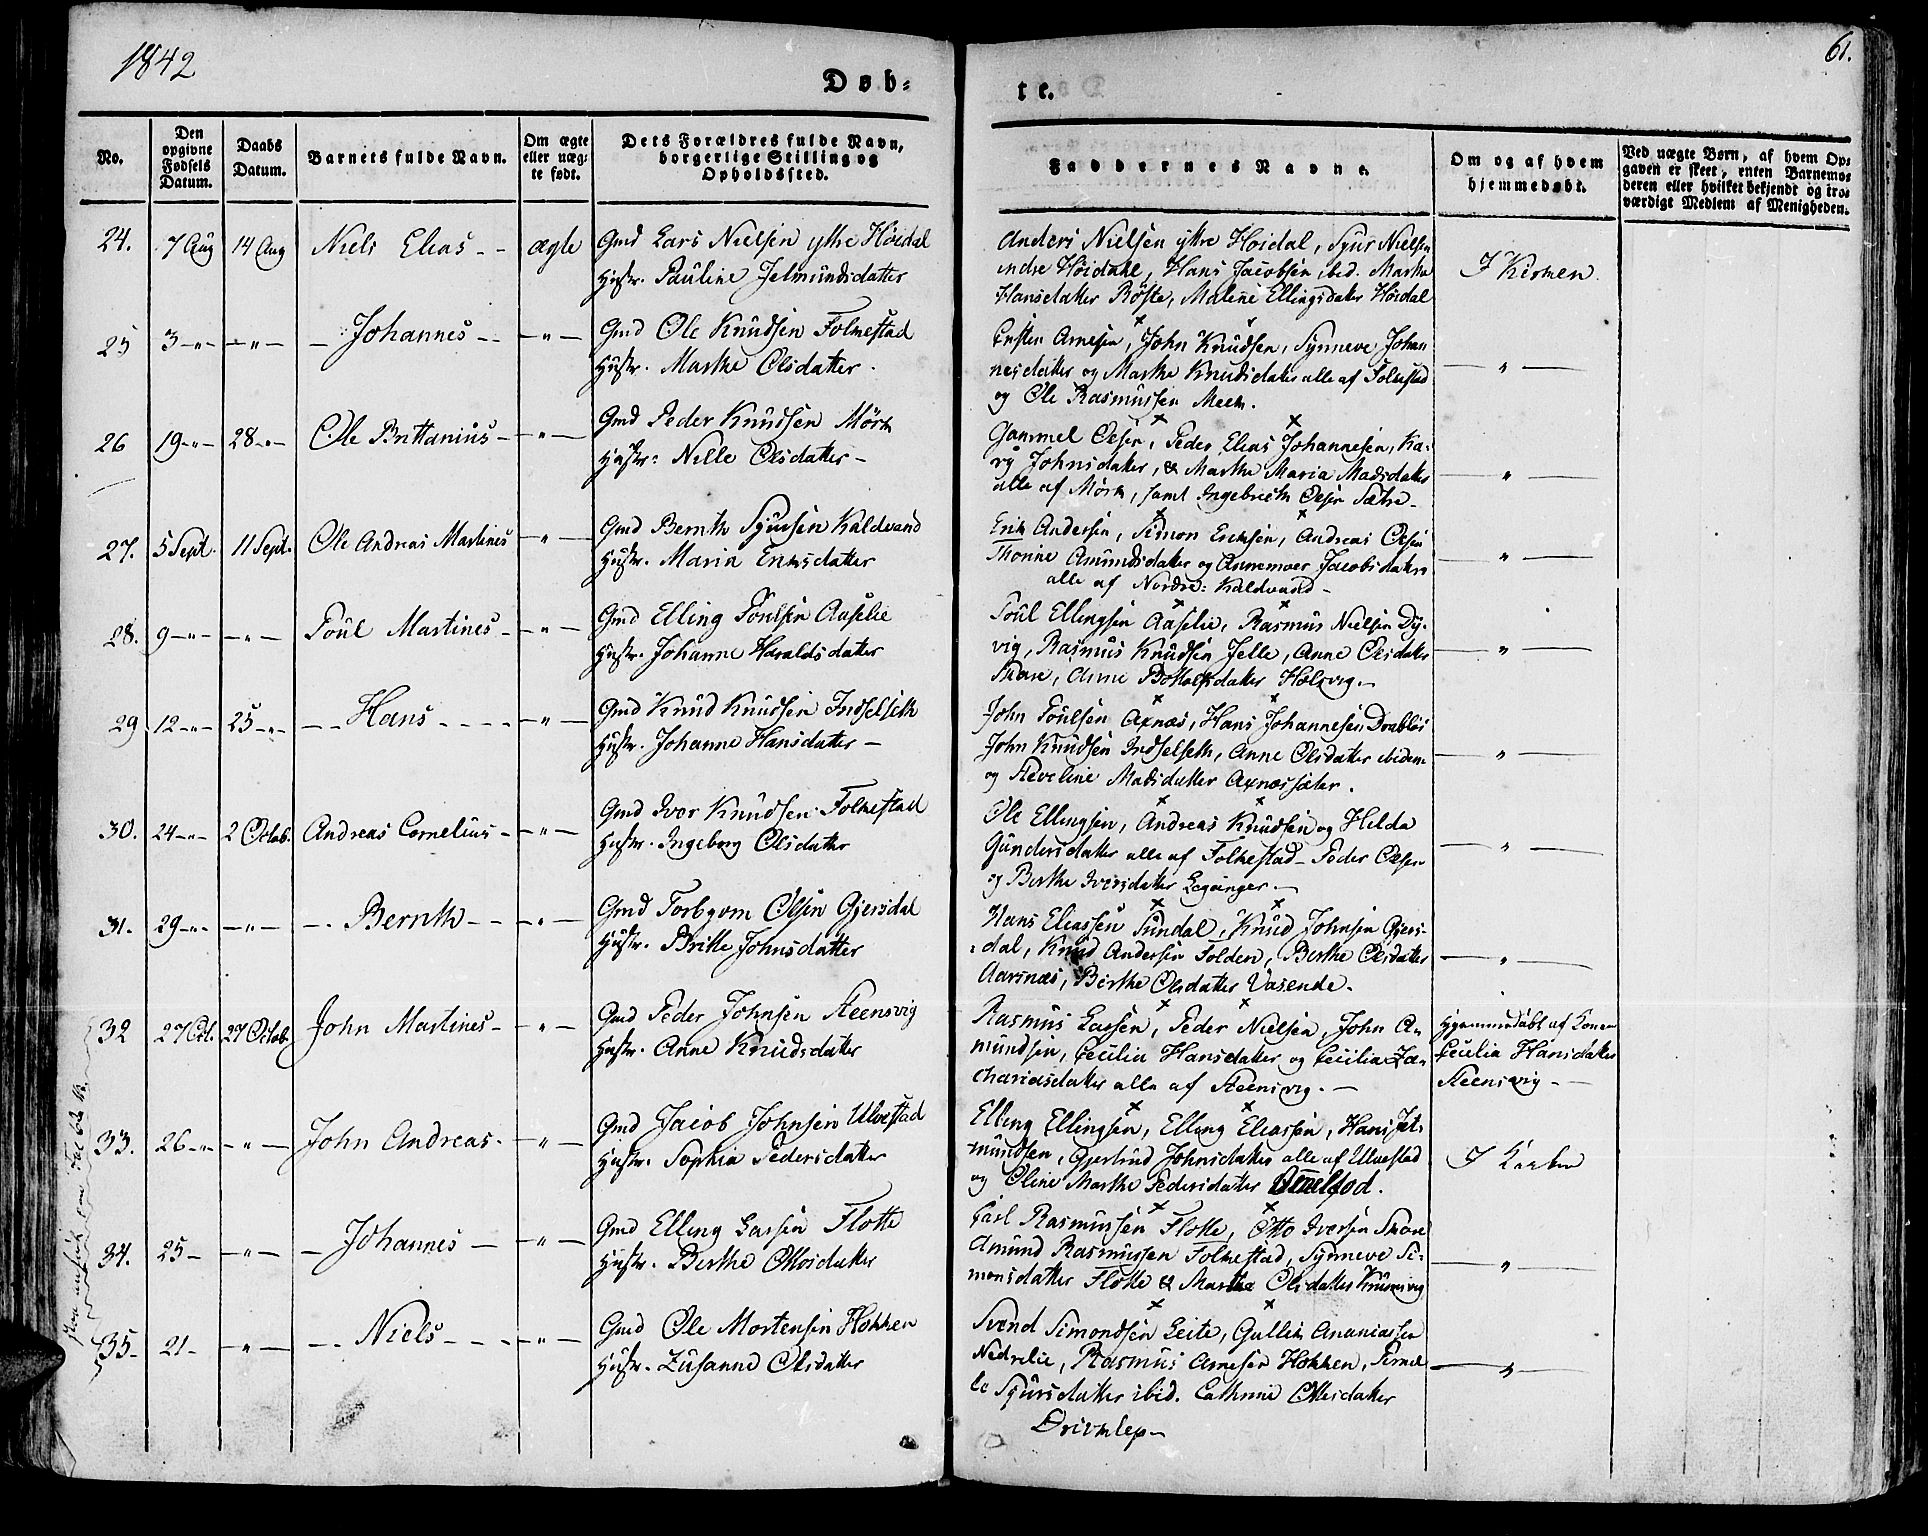 1842
61.
Døb-
te.
No.
Den opgivne Fødsels Datum.
Daabs Datum.
Barnets fulde Navn.
Om ægte eller uæg- te født.
Dets Forældres fulde Navn, borgerlige Stilling og Opholdssted.
Faddernes Navne.
Om og af hvem hjemmedøbt.
Ved uægte Børn, af hvem Op- gaven er skeet, enten Barnemo- deren eller hvilket bekjendt og tro- værdigt Medlem af Menigheden.
24. 7 Aug 14 Aug Niels Elias - - ægte Gmd Lars Nielsen ytre Höidal
Hustr. Pauline Jetmundsdatter
Anders Nielsen ytre Höidal, Sjur Nielsen
indre Höidahl, Hans Jacobsen ibid. Marthe
Hansdatter Röste, Malene Ellingsdatter Höidal
I Kirken
25 3 -"- -"- Johannes -"- Gmd Ole Knudsen Folkestad
Hustr. Marthe Olsdatter.
Arnesen, John Knudsen, Synneve Johan
nesdatter og Marthe Knudsdatter alle af Folkestad
og Ole Rasmussen Meek.
-"-
26 19 -"- 28 -"- Ole Brittanius -"- Gmd Peder Knudsen Mörk
Hustr: Nille Olsdatter -
Gammel Olsen, Peder Elias Johannesen, Ka-
ry Johnsdatter, & Marthe Maria Madsdatter
alle af Mörk, samt Ingebrict Olsen Sætre
-"-
27. 5 Sept. 11 Sept. Ole Andreas Martines -"- Gmd Bernth Sjursen Kaldvand
Hustr. Maria Eriksdatter
Erik Andersen, Simon Eriksen, Andreas Olsen
Thorine Amundsdatter og Annemoer Jacobsdatter
alle af Nordre: Kaldvand -
-"-
28. 9 -"- -"- Poul Martines -"- Gmd Elling Poulsen Aaselie
Hustr. Johanne Haraldsdatter
Poul Ellingsen Aaselie, Rasmus Nielsen Dy-
vig, Rasmus Knudsen Jelle, Anne Olsdatter
Skare, Anne Botolfsdatter Holsvig.-
-"-
29 12 -"- 25 -"- Hans -"- Gmd Knud Knudsen Indselseth
Hustr. Johanne Hansdatter -
John Poulsen Axnæs, Hans Johannesen Drabløs
John Knudsen Indselseth, Anne Olsdatter ibidem
og Steveline Madsdatter Axnæssæter.
-"-
30. 24 -"- 2 Octob. Andreas Cornelius -"- Gmd Ivor Knudsen Folkestad
Hustr. Ingeborg Olsdatter
Ole Ellingsen, Andreas Knudsen og Hilda
Gundersdatter alle af Folkestad - Peder Olsen
og Berthe Iversdatter Egeinger -
-"-
31. 29 -"- -"- Bernth -"- Gmd Torbjørn Olsen Gjersdal
Hustr. Britte Johnsdatter
Hans Eliassen Sundal, Knud Johnsen Gjers-
dal, Knud Andersen Folden, Berthe Olsdatter
Aarsnæs, Berthe Olsdatter Vasende.
-"-
32 27 Oct. 27 Octob. John Martines -"- Gmd Peder Johnsen Steensvig
Hustr. Anne Knudsdatter
Rasmus Larsen, Peder Nielsen, John A-
mundsen, Cecilia Hansdatter og Cecilia Za-
chariasdatter alle af Steensvig. -
Hjemmedøbt af Konen
Cecilia Hansdatter
Steensvig -
33. 26 -"- -"- John Andreas. -"- Gmd Jacob Johnsen Ulvestad
Hustr. Sophia Pedersdatter
Elling Ellingsen, Elling Eliassen, Hans Jet-
mundsen, Gjertrud Johnsdatter alle af Ulvestad
og Oline Marthe Pedersdatter
I Kirken
34. 25 - -"- Johannes -"- Gmd Elling Larsen Flotte
Hustr. Berthe Ottosdatter
Carl Rasmussen Flotte, Otto Iversen Skare
Amund Rasmussen Folkestad, Synneve Si-
monsdatter Flotte & Martha Olsdatter
-"-
35. 21 - -"- Niels -"- Gmd Ole Mortensen Hokken
Hustr. Zusanne Olsdatter
Svend Simondsen Leite, Gullik Ananiassen
Nedrelie, Rasmus Arnesen Hokken, Pernil
le Sjursdatter ibid. Cathrine Ottesdatter
Drivklep -
-"-